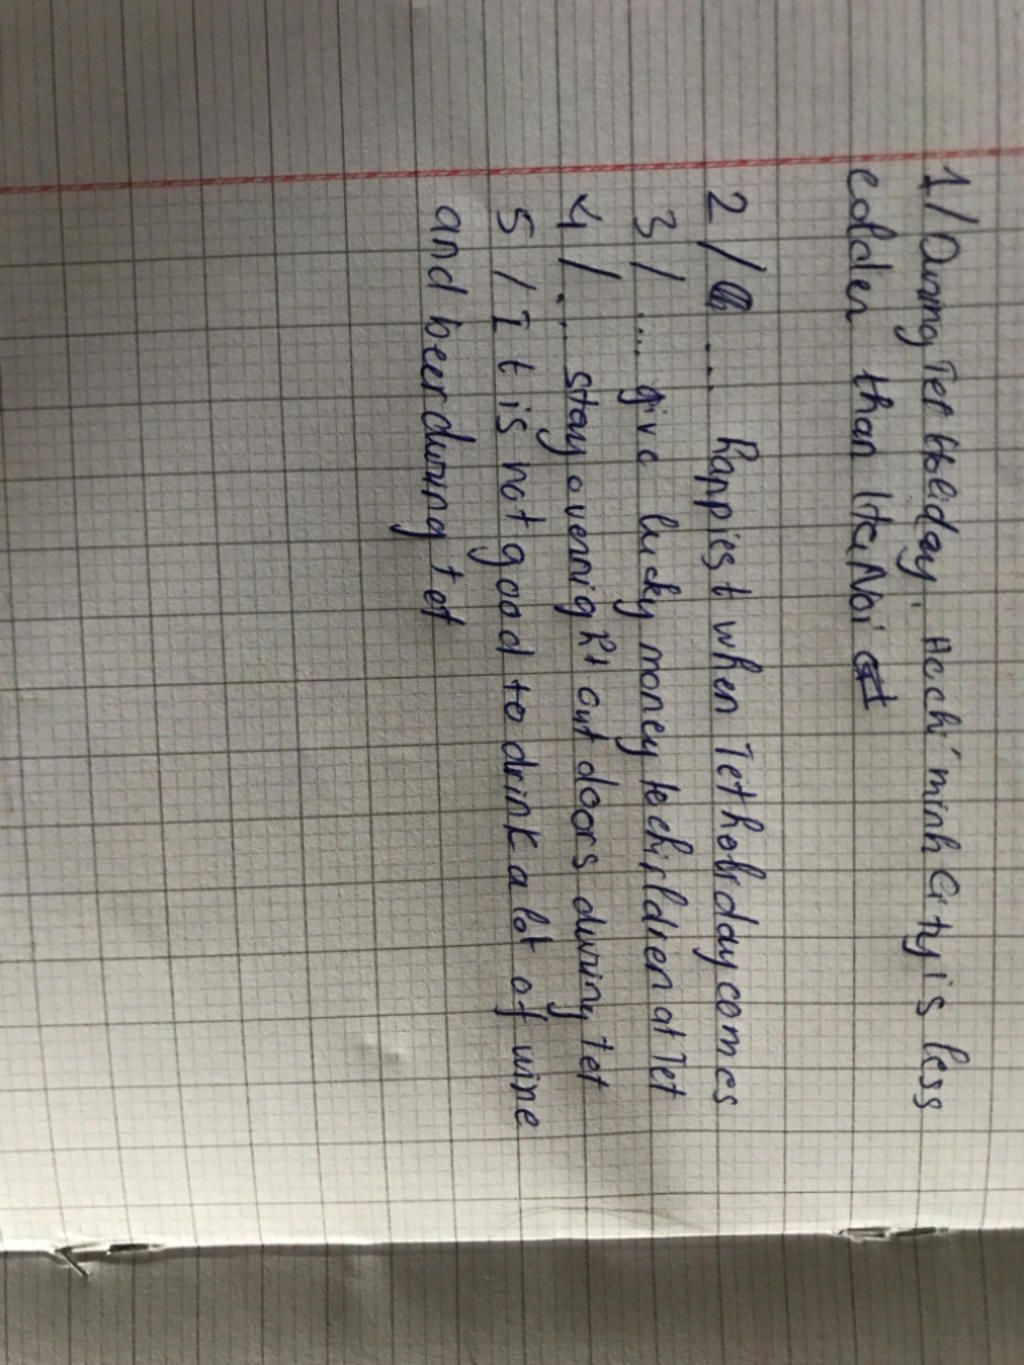 1/ During Tet Holiday, Hochi minh City is less
colder than Ha Noi
2/ ... happiest when Tet holiday comes
3/ ... give lucky money to chirldren at Tet
4/ ... stay overnight outdoors during Tet
5/ It is not good to drink a lot of wine
and beer during tet